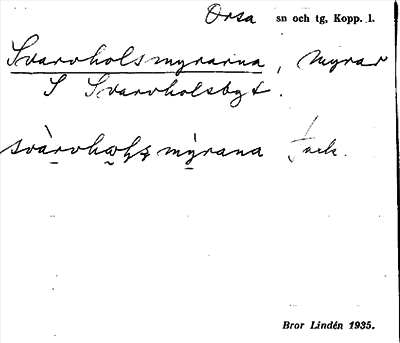 Orsa sn och tg, Kopp. l.
Svarvholsmyrarna, myrar
S Svarvholsbgt.
svàrvhols mỳrana
Bror Lindén 1935.